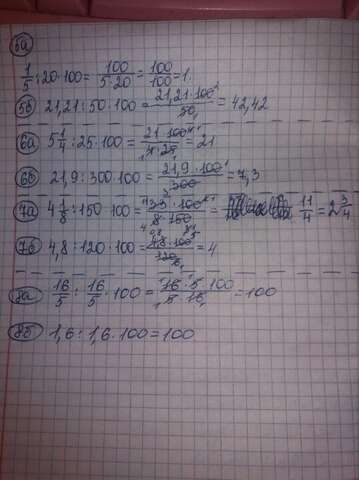 5а
1/5 : 20 · 100 = 100/(5·20) = 100/100 = 1.
5б 21,21 : 50 · 100 = (21,21 · 100 2)/50 1 = 42,42
6а 5 1/4 : 25 · 100 = (21 · 100)/(4 · 25) = 21
6б 21,9 : 300 · 100 = (21,9 · 100 1)/(3 300) = 7,3
7а 4 1/8 : 150 · 100 = (33 · 100)/(8 · 150) = 11/4 = 2 3/4
7б 4,8 : 120 · 100 = (4,8 · 100)/120 = 4
8а 16/5 : 16/5 · 100 = (16 · 5 · 100)/(5 · 16) = 100
8б 1,6 : 1,6 · 100 = 100